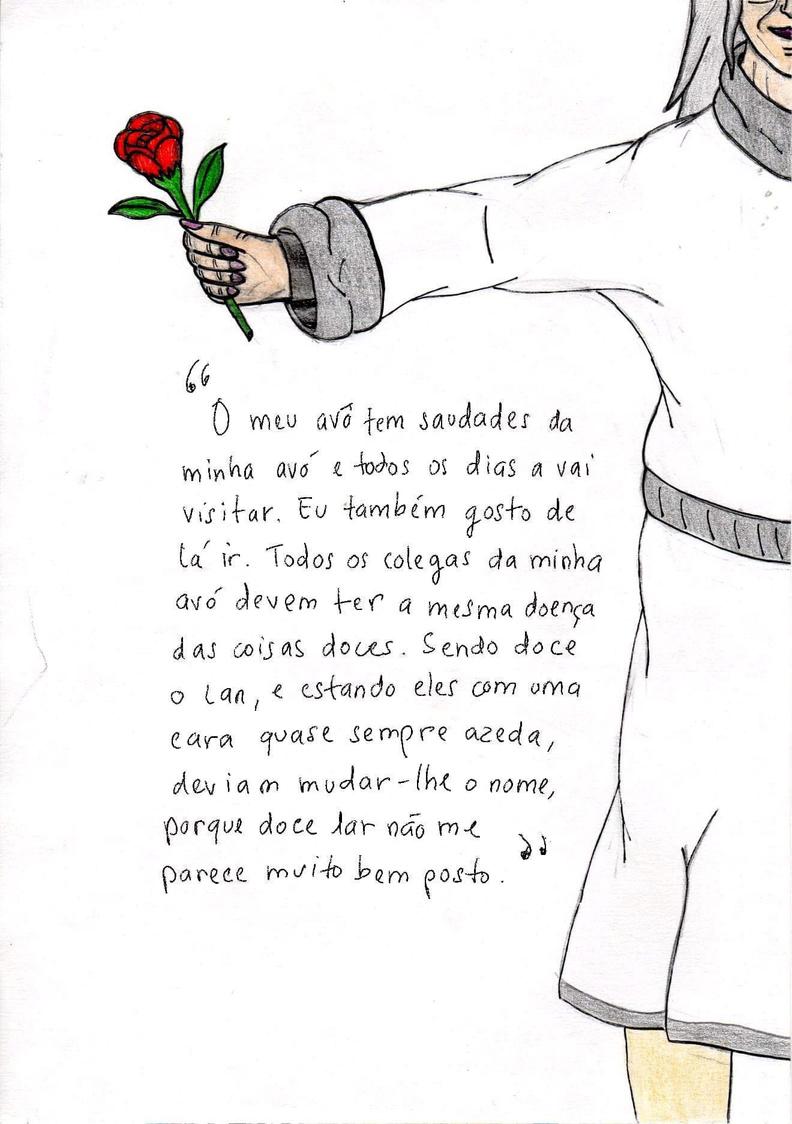 “
O meu avô tem saudades da
minha avó e todos os dias a vai
visitar. Eu também gosto de
lá ir. Todos os colegas da minha
avó devem ter a mesma doença
das coisas doces. Sendo doce
o lar, e estando eles com uma
cara quase sempre azeda,
deviam mudar-lhe o nome,
porque doce lar não me
parece muito bem posto. ”